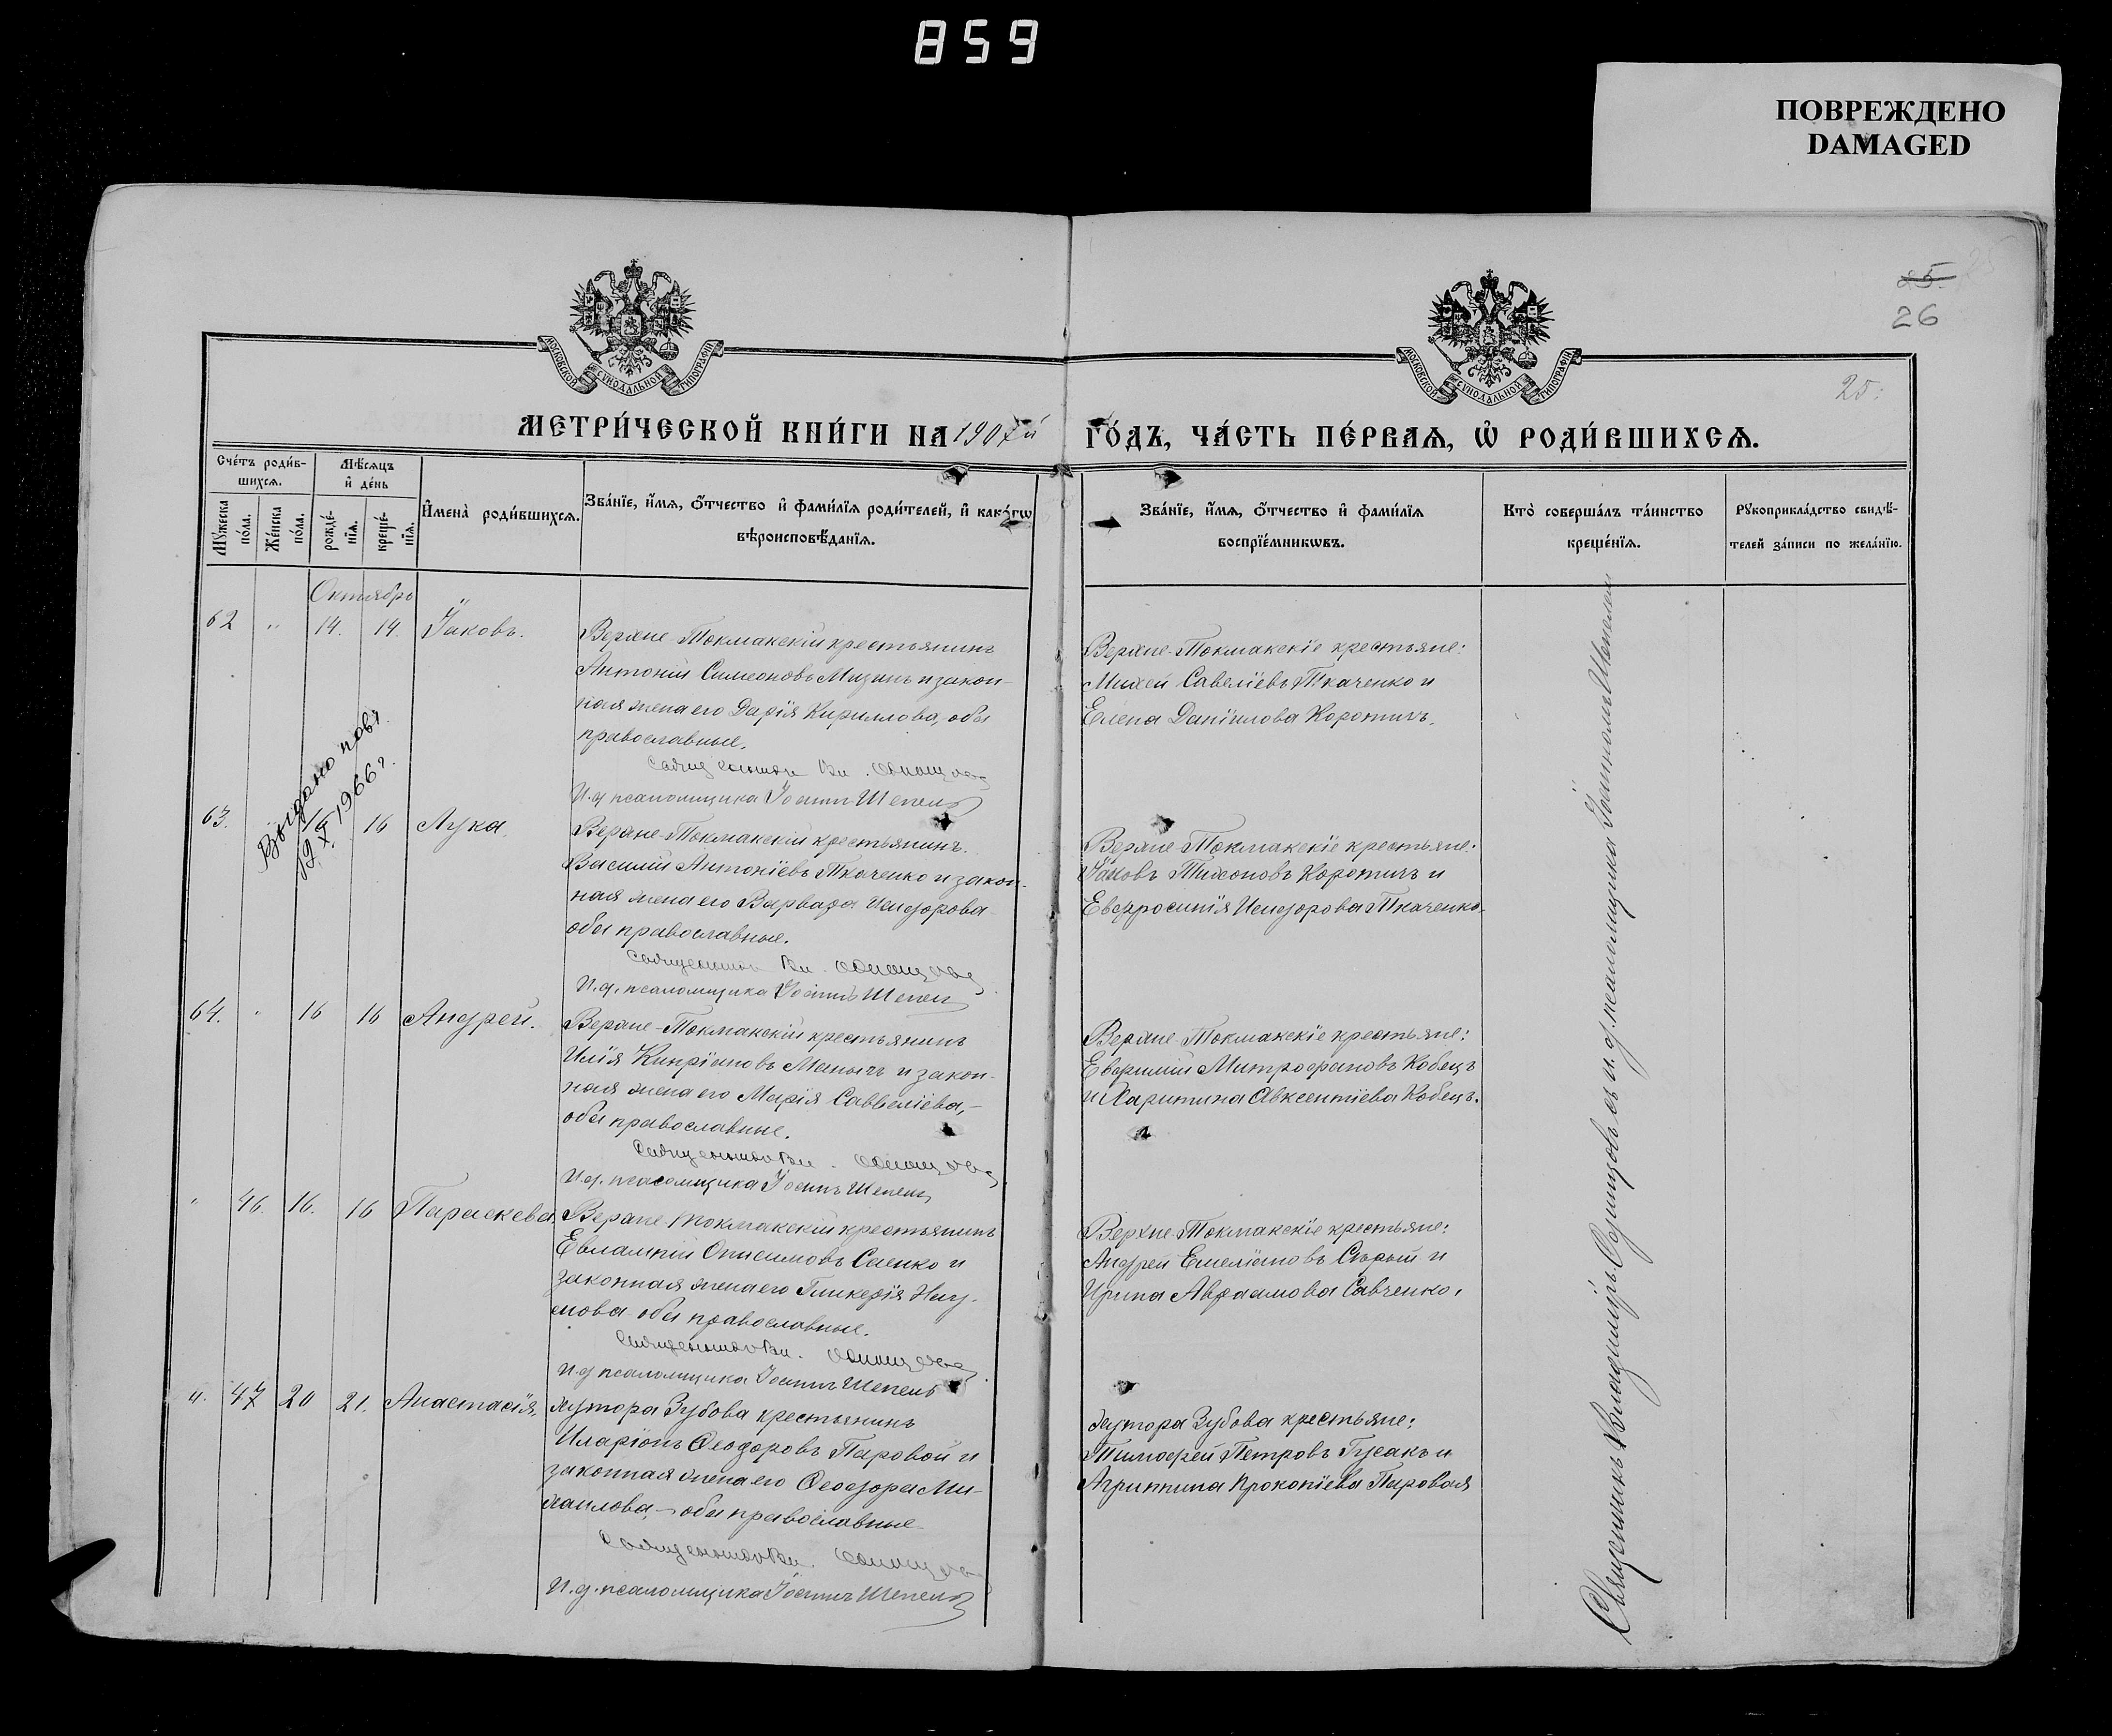 859
ПОВРЕЖДЕНО
DAMAGED
25.
26
25.
МОСКОВСКОЙ СУНОДАЛЬНОЙ ТИПОГРАФІИ
МОСКОВСКОЙ СУНОДАЛЬНОЙ ТИПОГРАФІИ
МЕТРИ́ЧЕСКОЙ КНИ́ГИ НА 1907й ГО́ДЪ, ЧА́СТЬ ПЕ́РВАѦ, Ѡ҆ РОДИ́ВШИХСѦ.
Сче́тъ роди́в-
шихсѧ.
Мѣ́сѧцъ
и҆ де́нь
Мꙋ́жеска по́ла.
Же́нска по́ла.
рожде́-нїѧ.
креще́-нїѧ.
И҆мена̀ роди́вшихсѧ.
Зва́нїе, и҆́мѧ, ѻ҆́тчество и҆ фами́лїѧ роди́телей, и҆ како́гѡ
вѣроисповѣ́данїѧ.
Зва́нїе, и҆́мѧ, ѻ҆́тчество и҆ фами́лїѧ
воспрїе́мникѡвъ.
Кто̀ соверша́лъ та́инство
креще́нїѧ.
Рꙋкоприкла́дство свидѣ́-
телей за́писи по жела́нїю.
Октябрь
62 " 14. 14. Іаковъ.
Верхне-Токмакскій крестьянинъ
Антоній Симеоновъ Мизинъ и закон-
ная жена его Дарія Кириллова, оба
православные.
Священникъ Вл. Одинцовъ
И.д. псаломщика Іоаннъ Шепель
Верхне-Токмакскіе крестьяне:
Михей Савеліевъ Ткаченко и
Елена Даніилова Коротичъ.
Выдано повт.
19 X 1966 г.
63. 16 16 Лука.
Верхне-Токмакскій крестьянинъ
Василій Антоніевъ Ткаченко и закон-
ная жена его Варвара Исидорова
оба православные.
Священникъ Вл. Одинцовъ
И.д. псаломщика Іоаннъ Шепель
Верхне-Токмакскіе крестьяне:
Іаковъ Тихоновъ Коротичъ и
Евфросинія Исидорова Ткаченко.
64. " 16 16 Андрей.
Верхне-Токмакскій крестьянинъ
Илія Кипріановъ Малычъ и закон-
ная жена его Марія Саввеліева,-
оба православные.
Священникъ Вл. Одинцовъ
И.д. псаломщика Іоаннъ Шепель
Верхне-Токмакскіе крестьяне:
Евфимій Митрофановъ Кобецъ
и Харитина Авксентіева Кобецъ.
" 46. 16. 16 Параскева.
Верхне-Токмакскій крестьянинъ
Евлампій Онисимовъ Саенко и
законная жена его Гликерія Нау-
мова оба православные.
Священникъ Вл. Одинцовъ
И.д псаломщика Іоаннъ Шепель
Верхне-Токмакскіе крестьяне:
Андрей Емеліановъ Сѣрый и
Ирина Авраамова Савченко.
". 47 20 21. Анастасія,
хутора Зубова крестьянинъ
Иларіонъ Ѳеодоровъ Паровой и
законная жена его Ѳеодора Ми-
хаилова,- оба православные
Священникъ Вл. Одинцовъ
И.д. псаломщика Іоаннъ Шепель
хутора Зубова крестьяне:
Тимофей Петровъ Гусакъ и
Агриппина Прокопіева Паровая
Священникъ Владиміръ Одинцовъ съ и.д. псаломщика Іоанномъ Шепелемъ